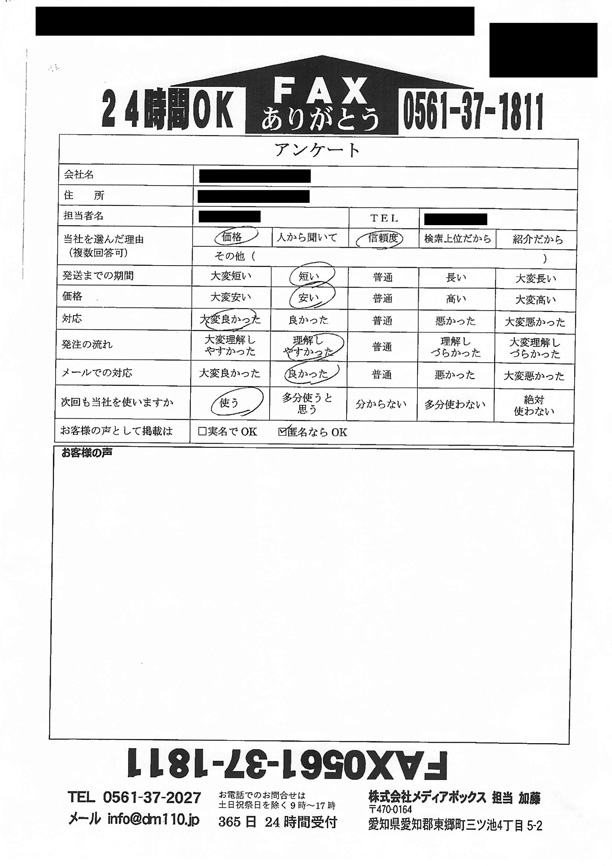 24時間OK FAX ありがとう 0561-37-1811
アンケート
会社名
住 所
担当者名 TEL
当社を選んだ理由 (複数回答可) 価格 人から聞いて 信頼度 検索上位だから 紹介だから
その他 ( )
発送までの期間 大変短い 短い 普通 長い 大変長い
価格 大変安い 安い 普通 高い 大変高い
対応 大変良かった 良かった 普通 悪かった 大変悪かった
発注の流れ 大変理解しやすかった 理解しやすかった 普通 理解しづらかった 大変理解しづらかった
メールでの対応 大変良かった 良かった 普通 悪かった 大変悪かった
次回も当社を使いますか 使う 多分使うと思う 分からない 多分使わない 絶対使わない
お客様の声として掲載は □実名でOK ☑匿名ならOK
お客様の声
FAX0561-37-1811
TEL 0561-37-2027
メール info@dm110.jp
お電話でのお問合せは
土日祝祭日を除く9時〜17時
365日 24時間受付
株式会社メディアボックス 担当 加藤
〒470-0164
愛知県愛知郡東郷町三ツ池4丁目5-2